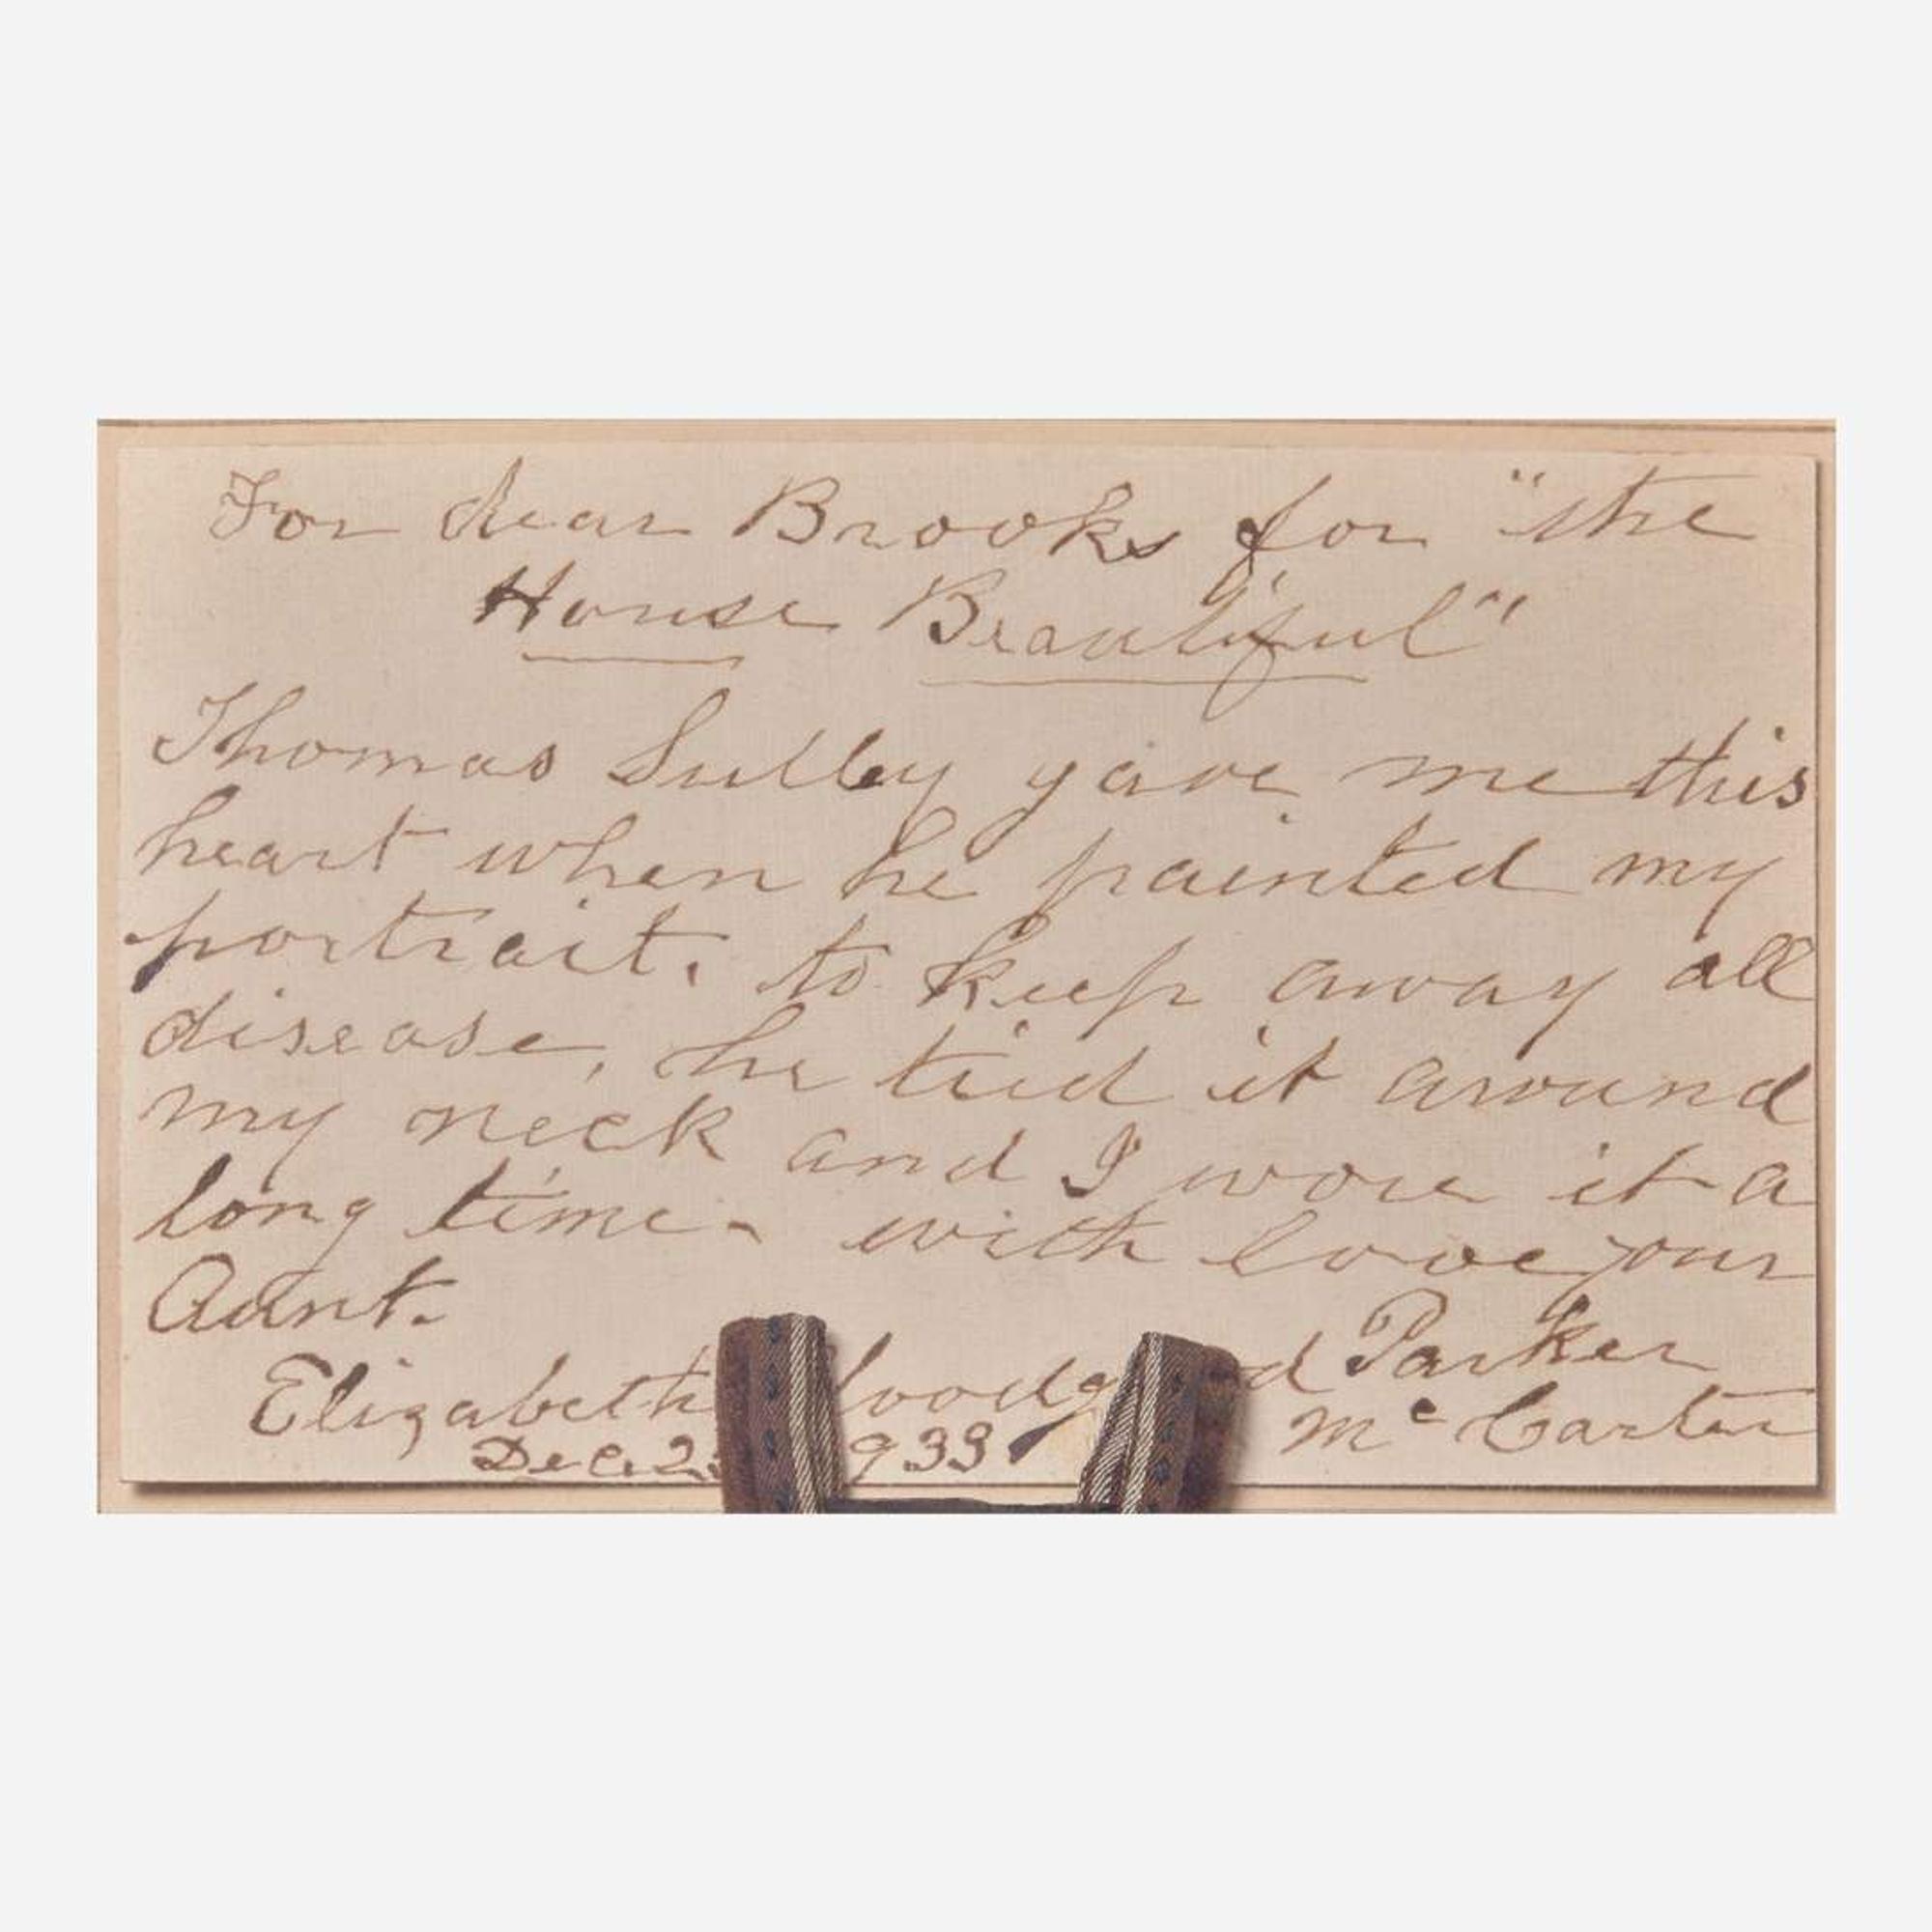 For dear Brooks for "the
House Beautiful"
Thomas Sully gave me this
heart when he painted my
portrait. to keep away all
disease, he tied it around
my neck and I wore it a
long time - with love your
Aunt.
Elizabeth Parker
Mc Carter
Dec.